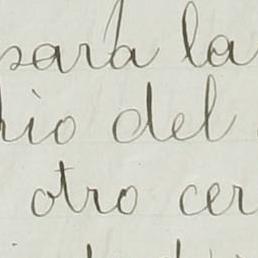 sará la
rio del
otro cer